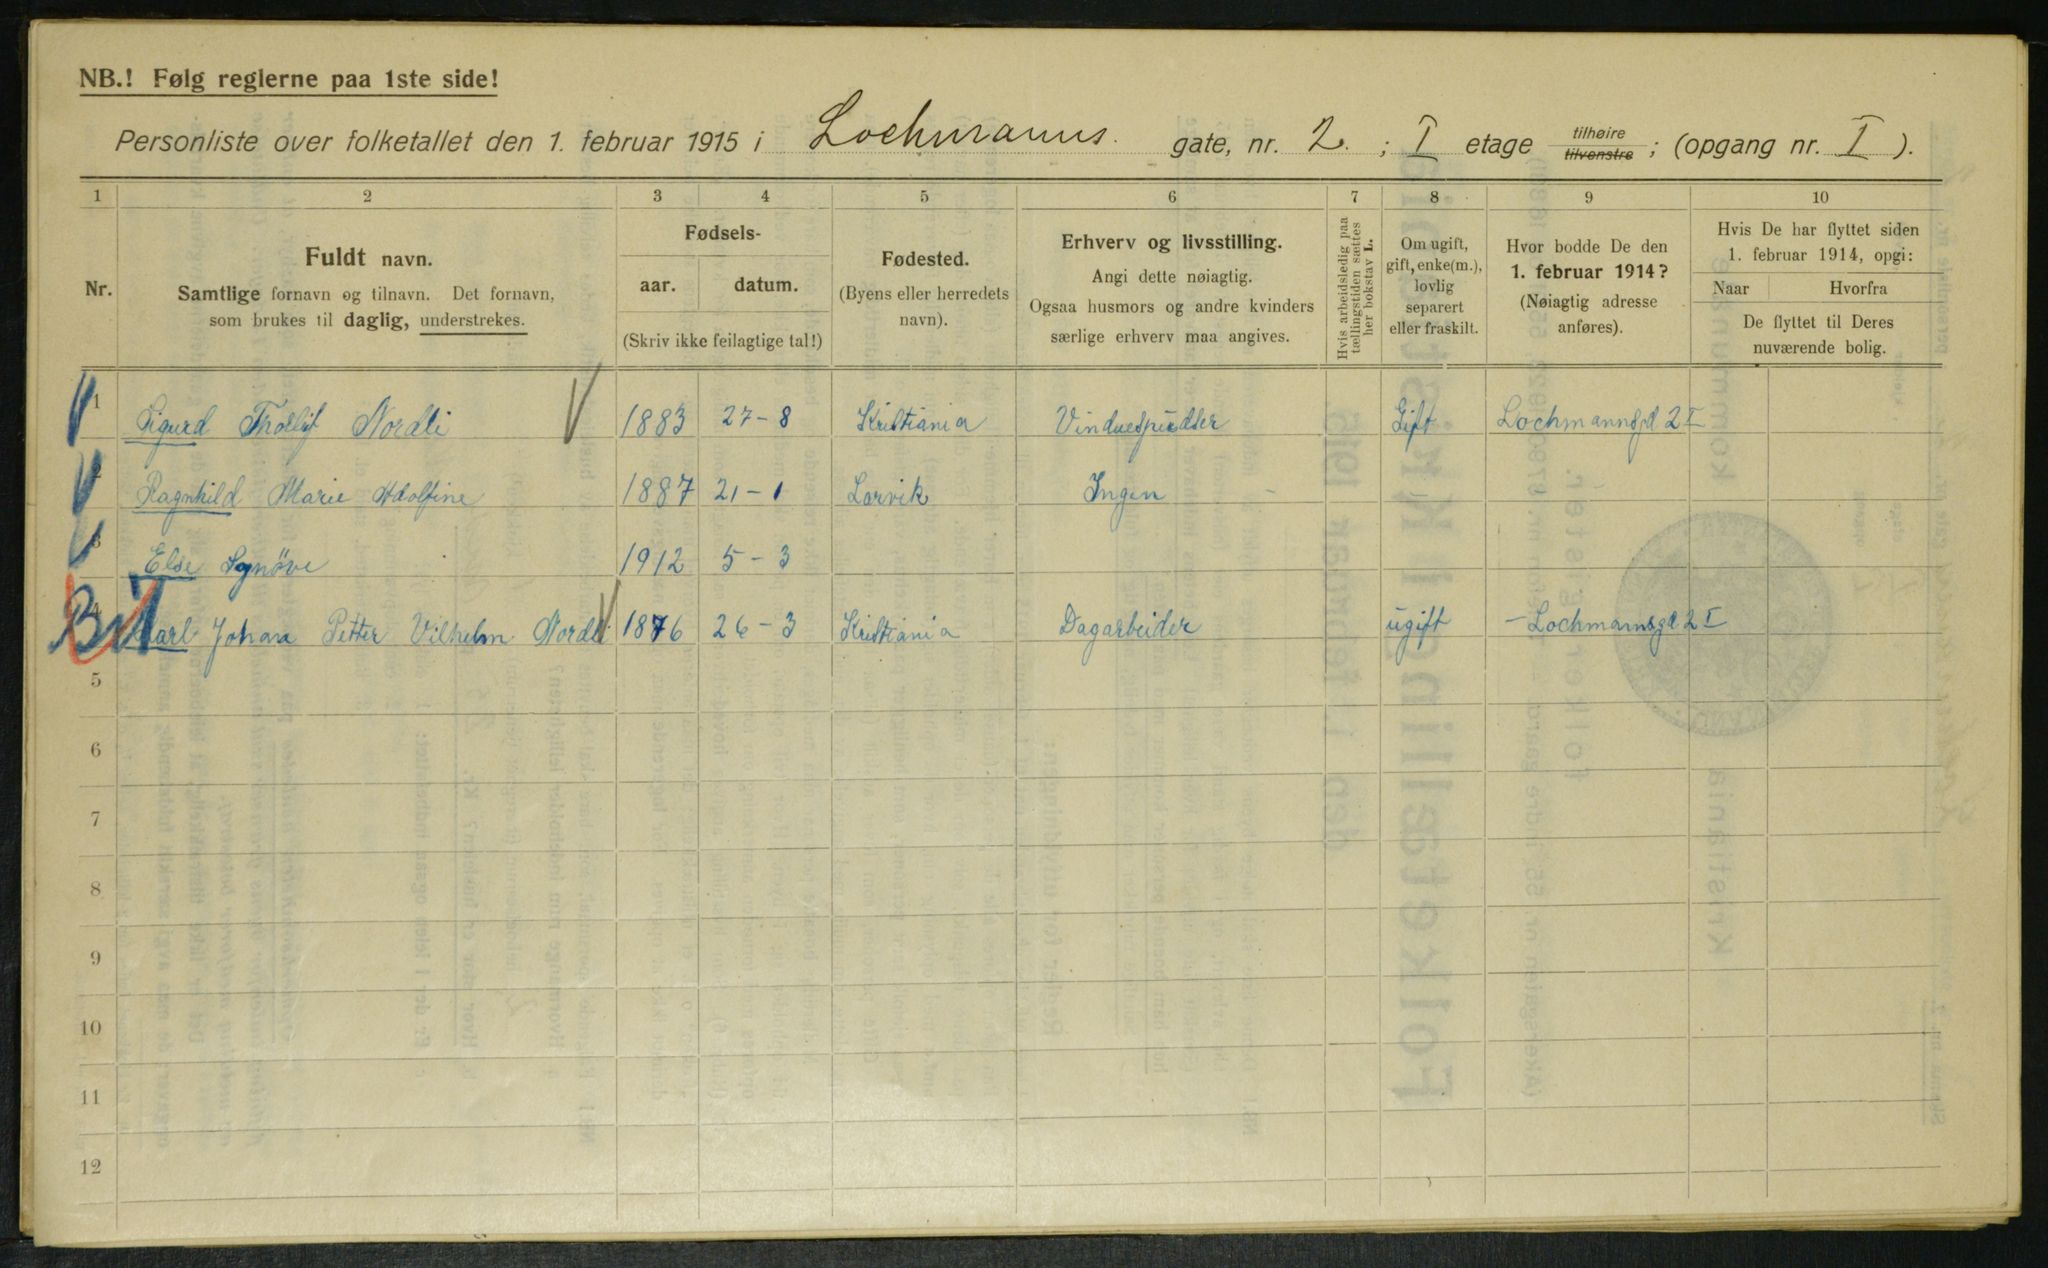 NB.! Følg reglerne paa 1ste side!
Personliste over folketallet den 1. februar 1915 i Lochmanns gate, nr. 2. ; I etage tilhøire tilvenstre ; (opgang nr. I ).
1 2 3 4 5 6 7 8 9 10
Nr.
Fuldt navn.
Samtlige fornavn og tilnavn. Det fornavn,
som brukes til daglig, understrekes.
Fødsels-
aar. datum.
(Skriv ikke feilagtige tal!)
Fødested.
(Byens eller herredets
navn).
Erhverv og livsstilling.
Angi dette nøiagtig.
Ogsaa husmors og andre kvinders
særlige erhverv maa angives.
Hvis arbeidsledig paa
tællingstiden sættes
her bokstav L.
Om ugift,
gift, enke(m.),
lovlig
separert
eller fraskilt.
Hvor bodde De den
1. februar 1914?
(Nøiagtig adresse
anføres).
Hvis De har flyttet siden
1. februar 1914, opgi:
Naar Hvorfra
De flyttet til Deres
nuværende bolig.
1 Sigurd Thorlif Nordli 1883 27-8 Kristiania Vinduespudser Gift Lochmannsgd 2 I
2 Ragnhild Marie Adolfine 1887 21-1 Larvik Ingen
3 Else Synøve 1912 5-3
4 Karl Johan Petter Vilhelm Nordli 1876 26-3 Kristiania Dagarbeider ugift - Lochmannsgd 2 I
5
6
7
8
9
10
11
12